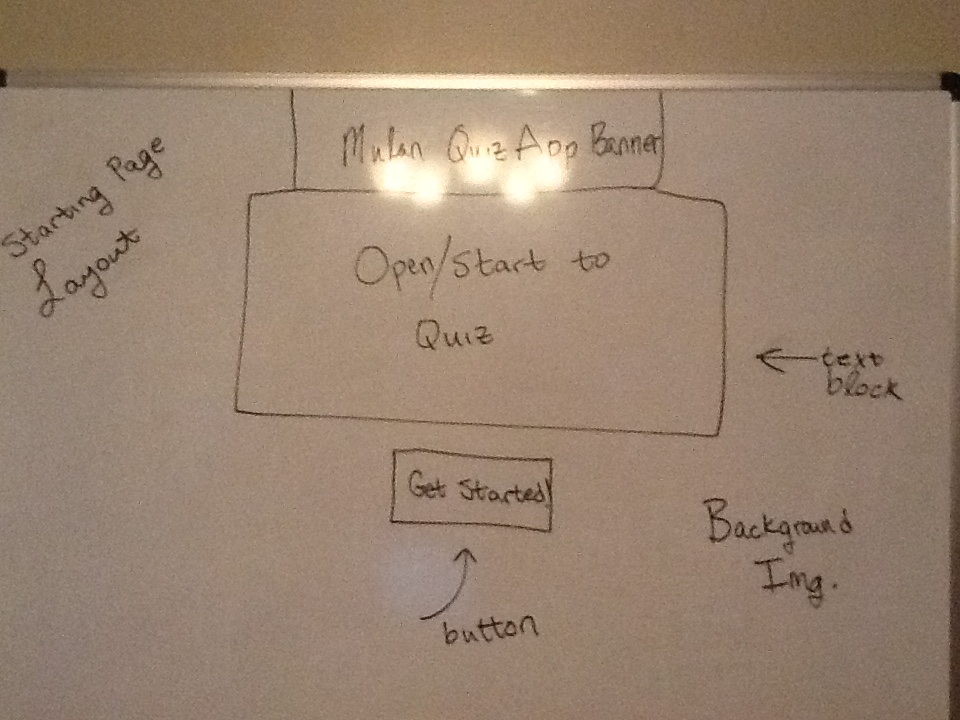 Starting Page
Layout
Mulan Quiz App Banner
Open/Start to
Quiz
text
block
Get Started
button
Background
Img.